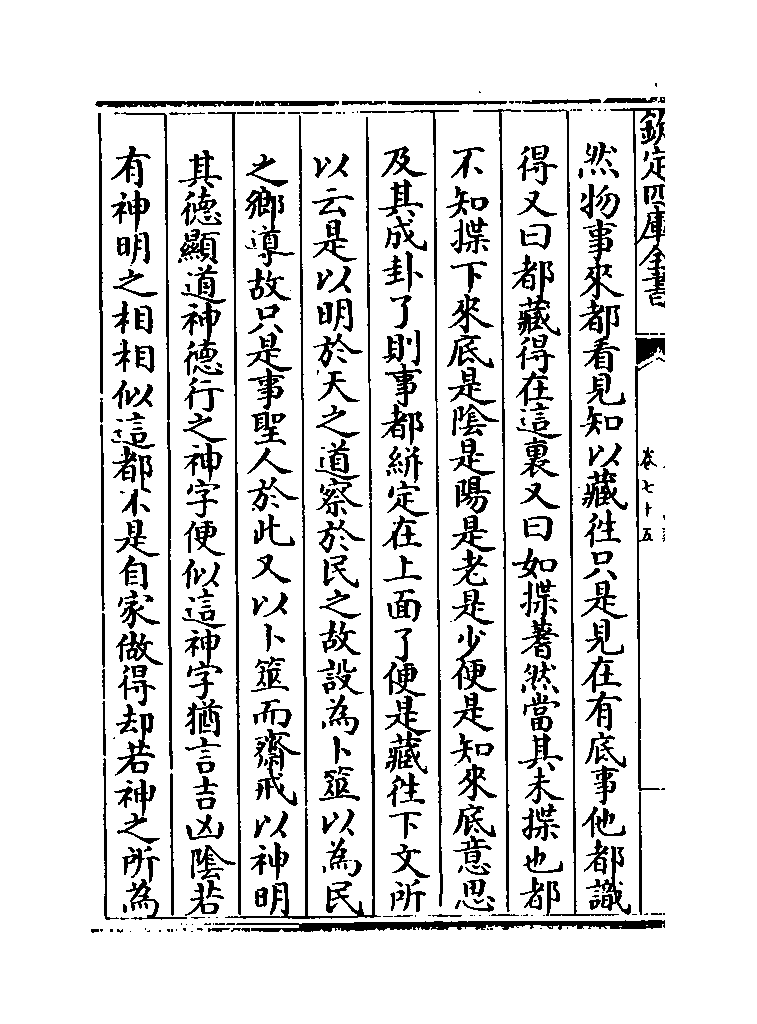 欽定四庫全書
卷七十五
然物事來都看見知以藏徃只是見在有底事他都識
得又曰都藏得在這裏又曰如揲蓍然當其未揲也都
不知揲下來底是陰是陽是老是少便是知來底意思
及其成卦了則事都絣定在上面了便是藏徃下文所
以云是以明於天之道察於民之故設為卜筮以為民
之鄉導故只是事聖人於此又以卜筮而齋戒以神明
其徳顯道神徳行之神字便似這神字猶言吉凶陰若
有神明之相相似這都不是自家做得却若神之所為